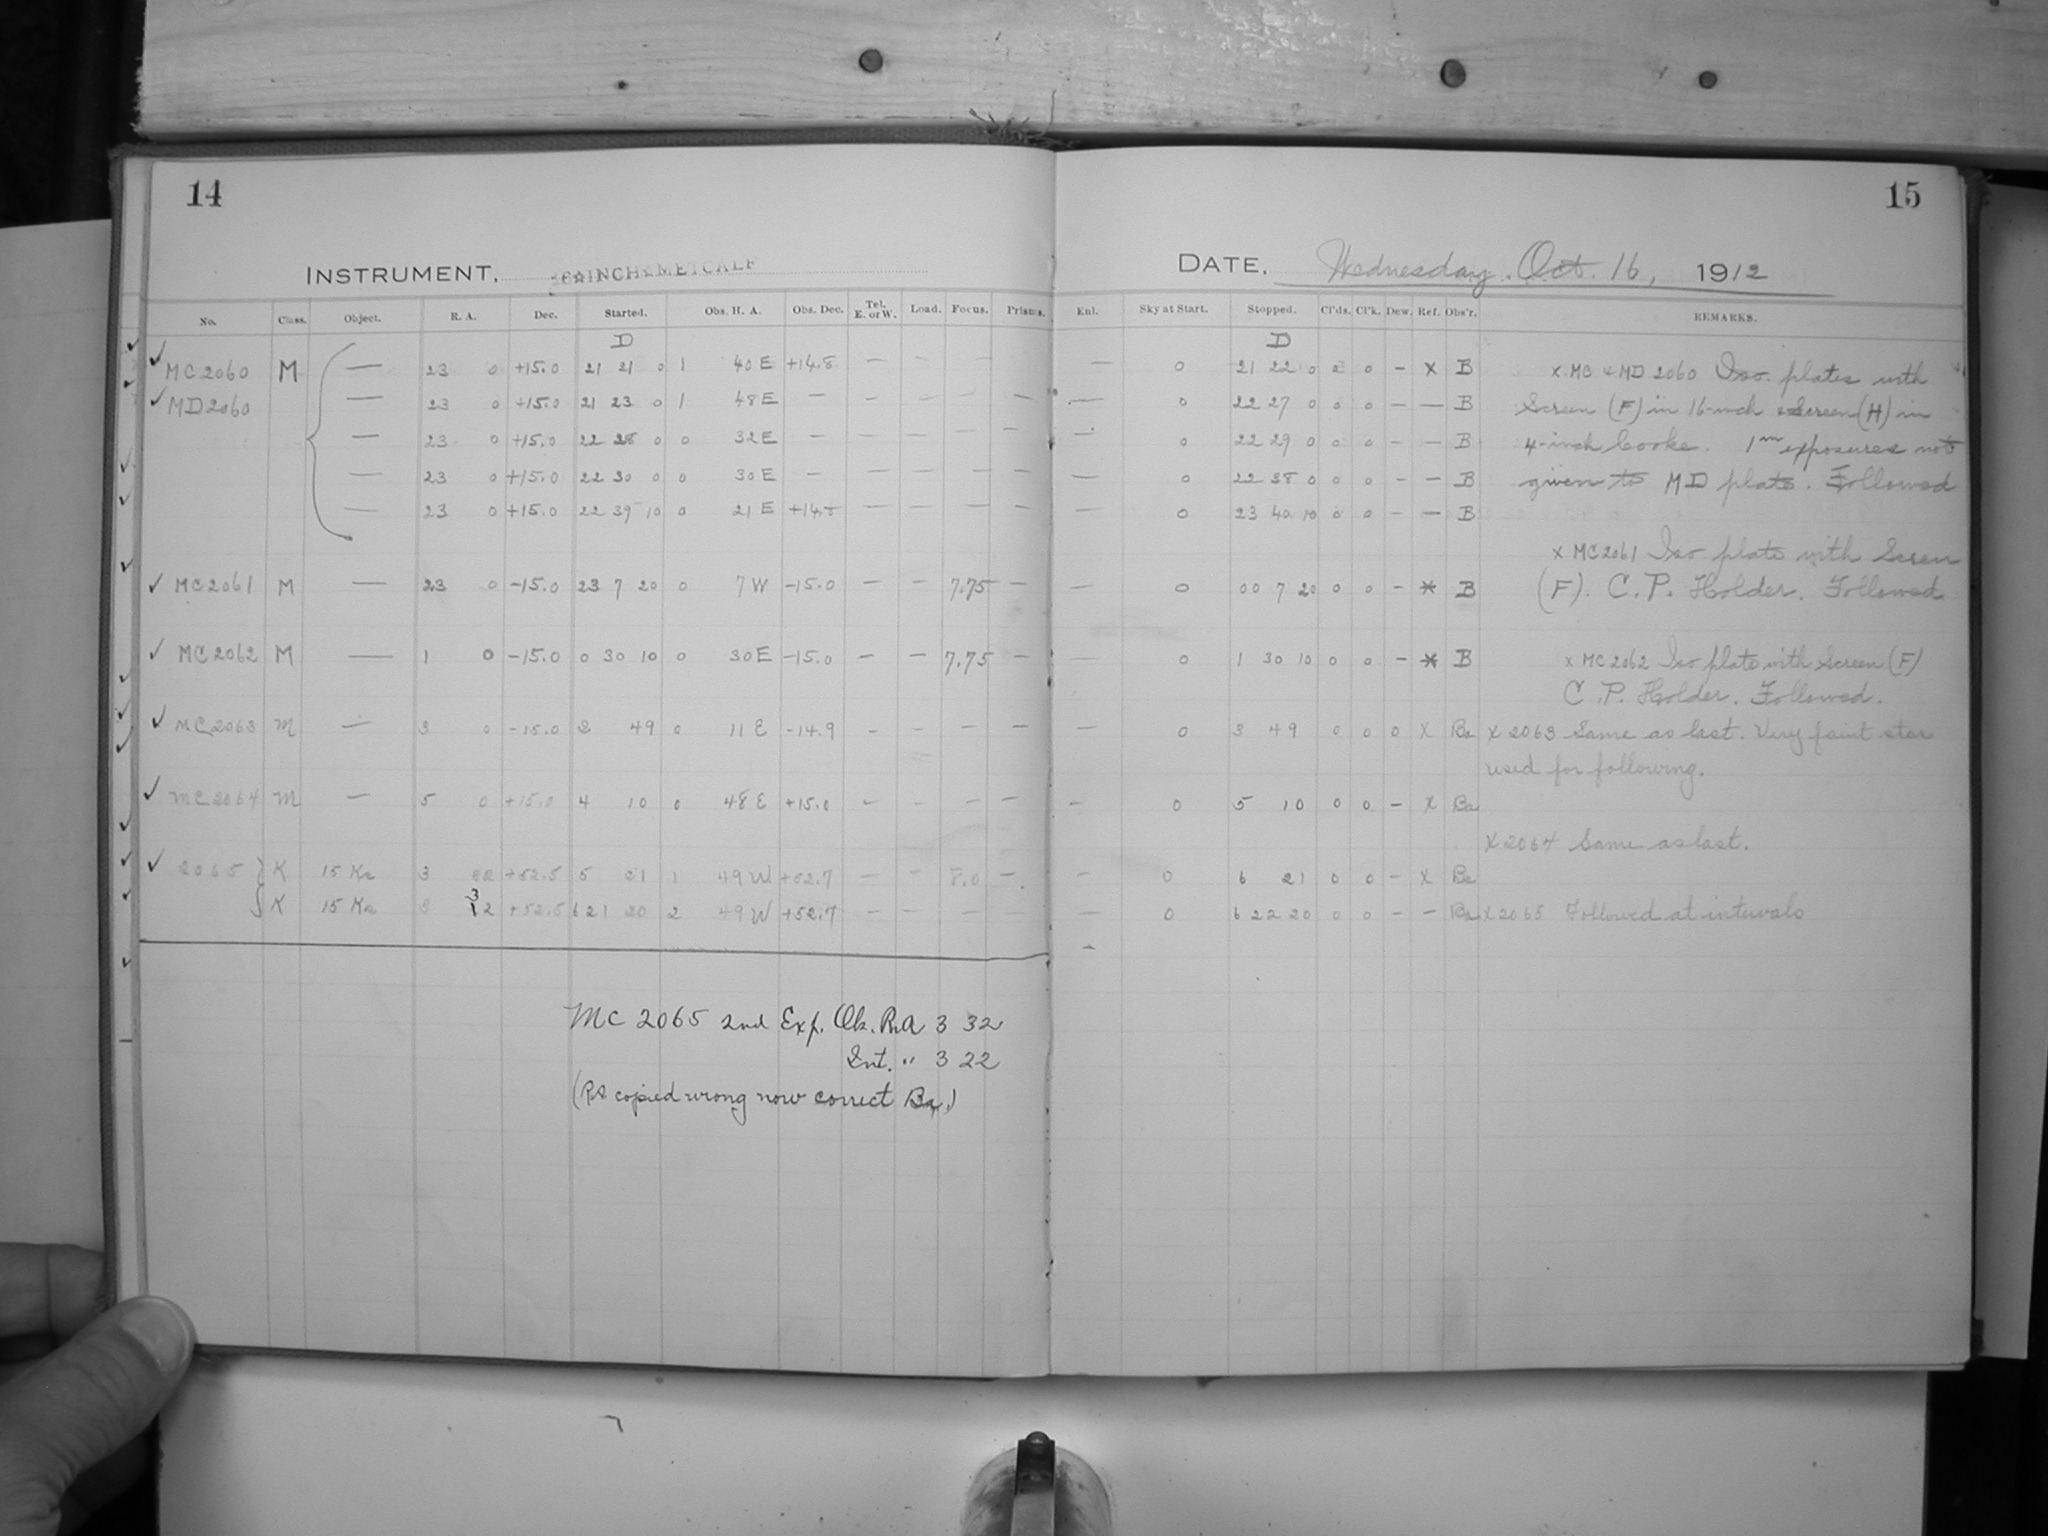 14
INSTRUMENT, 16 INCH METCALF
No. Class. Object. R. A. Dec. Started. Obs. H. A. Obs. Dec. Tel. E. or W. Load. Focus. Prisms.
D
MC 2060 M — 23 0 +15.0 21 21 0 1 40 E +14.8 — — —
MD 2060 — 23 0 +15.0 21 23 0 1 48 E — — — — —
— 23 0 +15.0 22 28 0 0 32 E — — — — —
— 23 0 +15.0 22 30 0 0 30 E — — — — —
— 23 0 +15.0 22 39 10 0 21 E +14.8 — — — —
MC 2061 M — 23 0 -15.0 23 7 20 0 7 W -15.0 — — 7.75 —
MC 2062 M — 1 0 -15.0 0 30 10 0 30 E -15.0 — — 7.75 —
MC 2063 M — 3 0 -15.0 2 49 0 11 E -14.9 — — — —
MC 2064 M — 5 0 +15.0 4 10 0 48 E +15.0 — — — —
2065 K 15 Ka 3 +52.5 5 21 1 49 W +52.7 — — 8.0 —
K 15 Ka 3 32 +52.5 6 21 20 2 49 W +52.7 — — — —
MC 2065 2nd Exp. Ob. RA 3 32
Int. " 3 22
(RA copied wrong now correct Ba.)
15
DATE, Wednesday. Oct. 16, 1912
Enl. Sky at Start. Stopped. Cl'ds. Cl'k. Dew. Ref. Obs'r. REMARKS.
D
— 0 21 22 0 0 0 — X B x MC & MD 2060 Iso. plates with
— 0 22 27 0 0 0 — — B Screen (F) in 16-inch & Screen (H) in
— 0 22 29 0 0 0 — — B 4-inch Cooke. 1m exposures not
— 0 22 38 0 0 0 — — B given to MD plate. Followed
— 0 23 40 10 0 0 — — B
x MC 2061 Iso plate with Screen
— 0 00 7 20 0 0 — X B (F). C. P. Holder. Followed
— 0 1 30 10 0 0 — X B x MC 2062 Iso plate with Screen (F)
C. P. Holder. Followed.
— 0 3 49 0 0 0 X Ba X 2063 Same as last. Very faint star
used for following.
— 0 5 10 0 0 — X Ba
X 2064 Same as last.
— 0 6 21 0 0 — X Ba
— 0 6 22 20 0 0 — — Ba X 2065 Followed at intervals
—